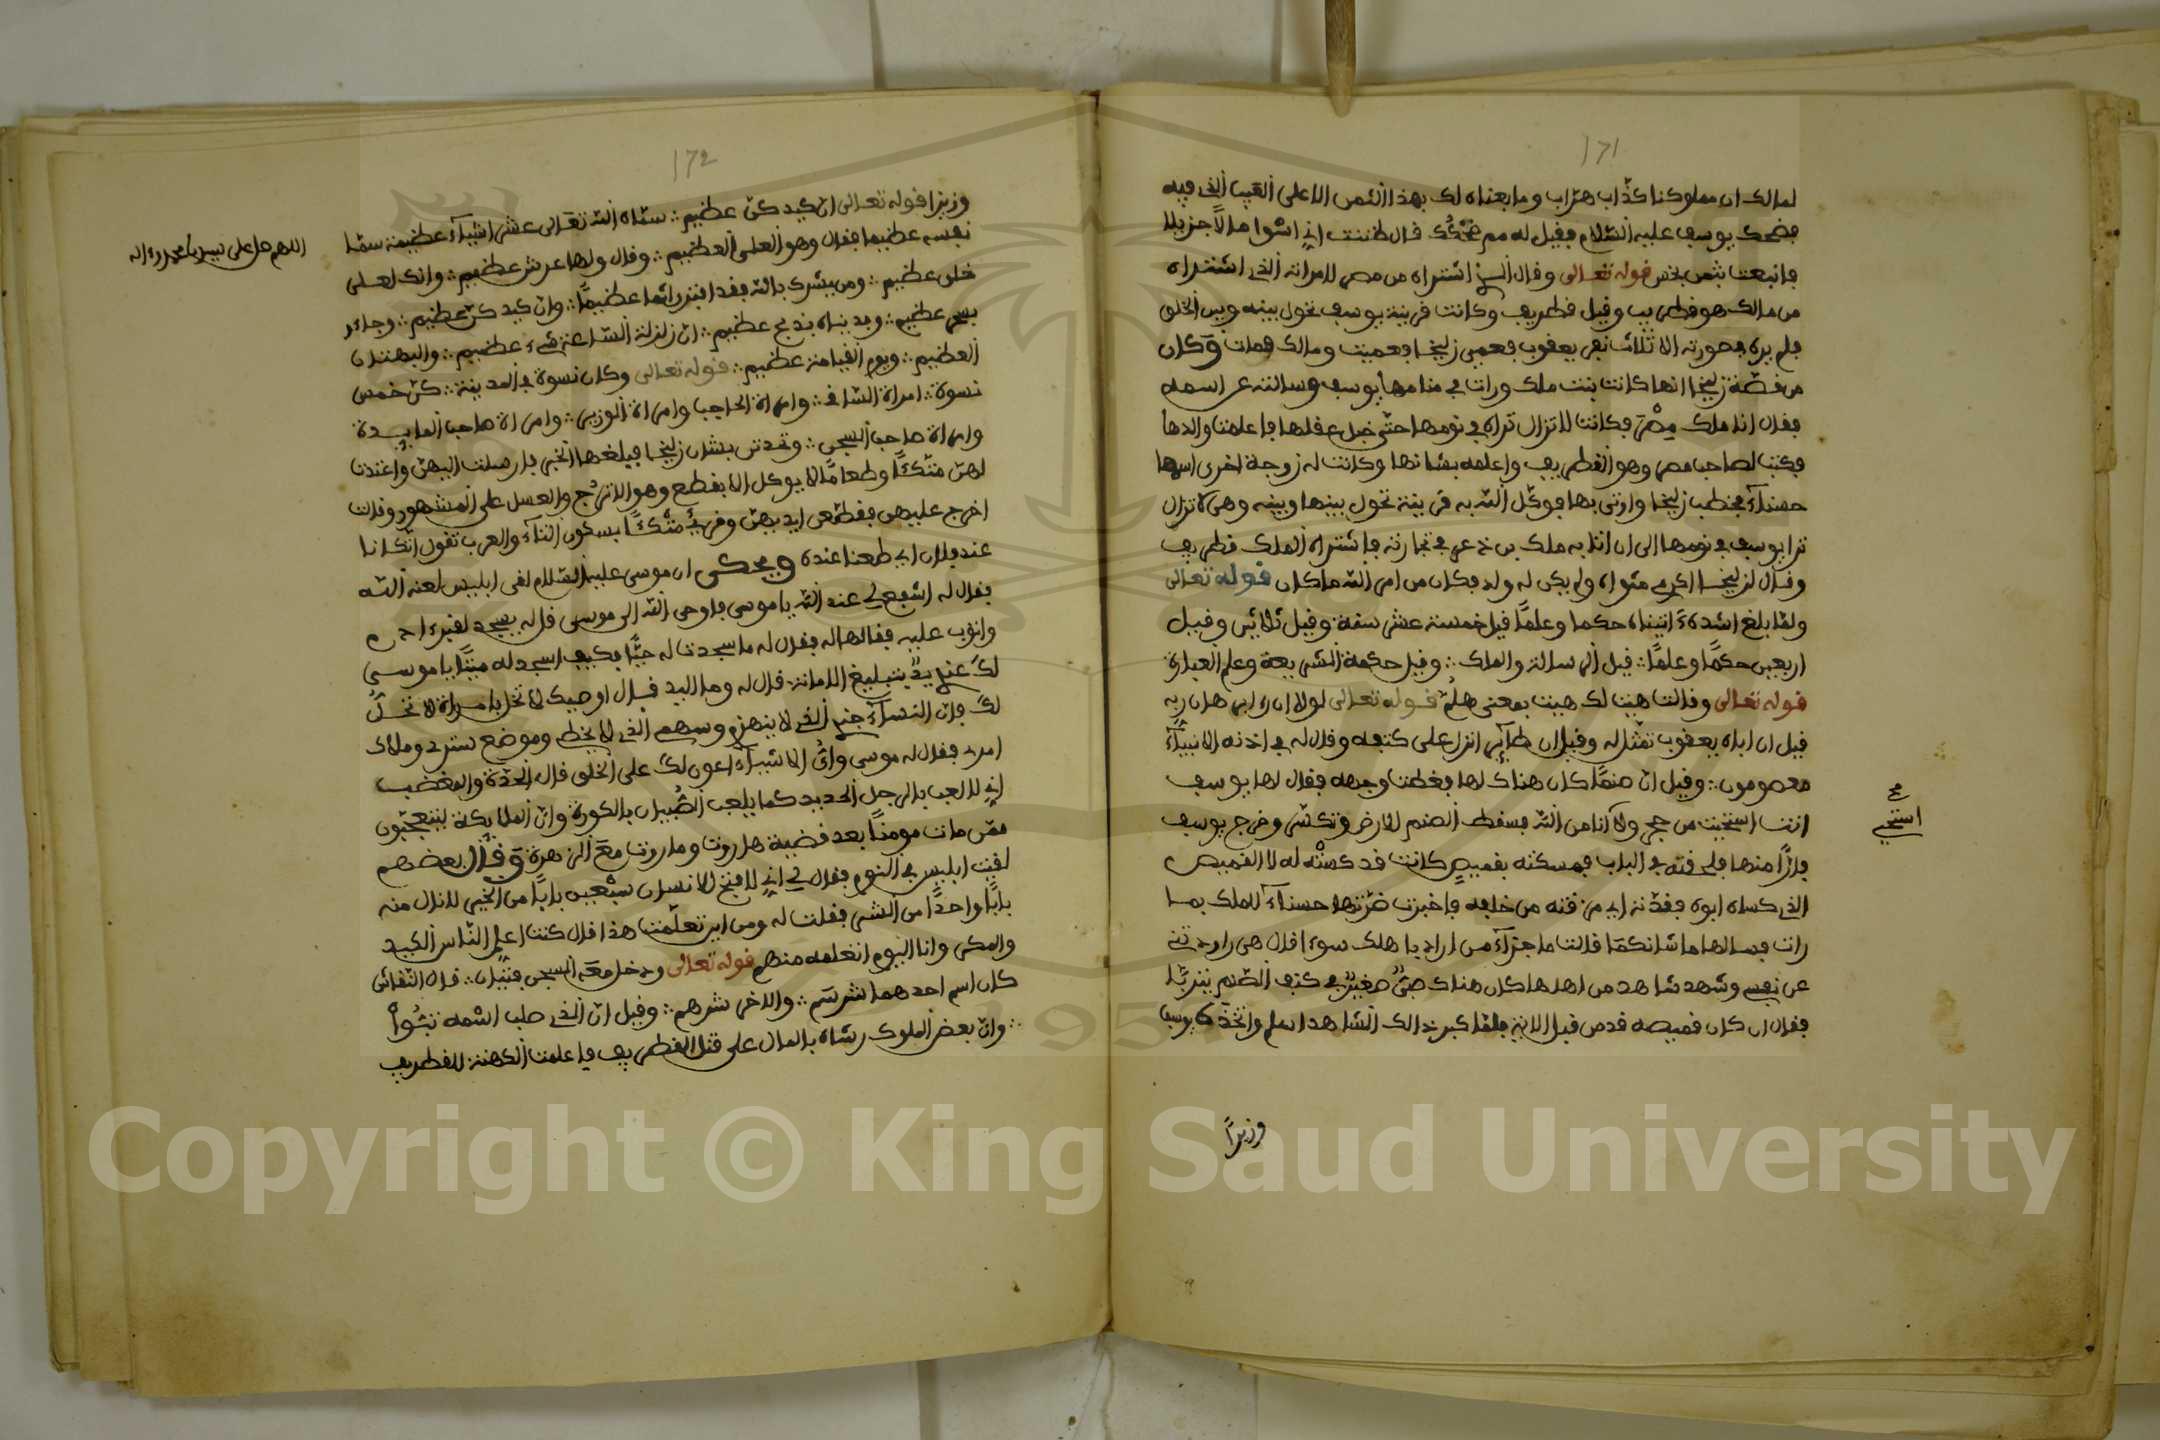 171
لمالك ان مملوكنا كذّاب هرّاب وما بعناه لك بهذا الثمن الا على العيب الذي فيه
فضحك يوسف عليه السّلام فقيل له مم ضحّكك قال ظننت اني اسْوا مالًا جزيلا
فانبعت بثمن بخس قوله تعالى وقال الذي اشتراه من مصر لامراته الذي اشتراه
من مالك هو قطريب وقيل قطريف وكانت قرينة يوسف تحول بينه وبين الخلق
فلم يره بصورته الا ثلاث نفر يعقوب فعمي زليخا فعميت ومالك فمات وكان
من قصّة زليخا انها كانت بنت ملك ورات في منامها يوسف وسالته عن اسمه
فقال انا ملك مصْر فكانت لا تزال تراه في نومها حتّى خبل عقلها فاعلمت والدها
فكتب لصاحب مصر وهو القطريف واعلمه بشانها وكانت له زوجة اخرى اسمها
حسنآء فخطب زليخا واوتي بها فوكّل الله به قرينة تحول بينها وبينه وهي لا تزال
ترا يوسف في نومها الى ان اتا به ملك بن ذعر في تجارته فاشتراه الملك قطريف
وقال لزليخا اكرمي مثواه ولم يكن له ولد فكان من امر الله ما كان قوله تعالى
ولمّا بلغ اشدهٗ اتيناه حكما وعلمًا قيل خمسة عشر سنة وقيل ثلاثين وقيل
اربعين حكمًا وعلمًا قيل الرسالة والملك وقيل حكمة الشريعة وعلم العبارة
قوله تعالى وقالت هيت لك هيت بمعنى هلمّ قوله تعالى لولا ان را برهان ربه
قيل ان اباه يعقوب تمثّل له وقيل ان طآئرا نزل على كتفه وقال له في اذنه الانبيآء
معصومون وقيل انّ صنمًا كان هناك لها فغطت وجهه فقال لها يوسف
انت استحيت من حجر ولا انا من الله فسقط الصنم للارض وتكسّر وخرج يوسف
فارًّا منها فلحقته في الباب فمسكته بقميصٍ كانت قد كسْته له لا القميص
الذي كساه ابوه فقدّته اي مزقته من خلفه فاخبرت ضرّتها حسنآء للملك بما
رات فسالها ما شانكما قالت ما جزآء من اراد باهلك سوءا قال هي راودتني
عن نفسي وشهد شاهد من اهلها كان هناك صبيٌّ صغيرٌ في كتف الصّنم يتربّا
فقال ان كان قميصه قد من قبل الاية فلمّا كبر ذالك الشّاهد اسلم واتخذه يوسف
صح
استحي
وزيرًا
172
وزيرا قوله تعالى ان كيدكنّ عظيم سمّاه الله تعالى عشر اشيآء عظيمة سمّا
نفسه عظيما فقال وهو العلى العظيم وقال ولها عرش عظيم وانك لعلى
خلق عظيم ومن يشرك بالله فقد افترى اثما عظيمًا وانّ كيدكنّ عظيم وجاءو
بسحر عظيم وفديناه بذبح عظيم انّ زلزلة السّاعة شيء عظيم والبهتان
العظيم ويوم القيامة عظيم قوله تعالى وقال نسوة في المدينة كنّ خمس
نسوة امراة السّاقي وامراة الحاجب وامراة الوزير وامراة صاحب المايدة
وامراة صاحب السجن وتحدثن بشان زليخا فبلغها الخبر فارسلت اليهنّ واعتدت
لهنّ متّكئًا وطعامًا لا يوكل الا بقطع وهو الاترُج والعسل على المشهور وقالت
اخرج عليهن فقطّعن ايديهنّ وقريء متْكئًا بسكون التآء والعرب تقول اتّكانا
عند فلان اي طعنا عنده ويحكى ان موسى عليه السّلام لقى ابليس لعنه الله
فقال له اشفع لي عند الله يا موسى فاوحى الله الى موسى قل له يسجد لقبر ادم
واتوب عليه فقالها له فقال له ما سجدت له حيًّا فكيف اسجد له ميّتًا يا موسى
لك عندي يدٌ بتبليغ الامانة قال له وما اليد قال اوصيك لا تخل بامراة لا تحلّ
لك فانّ النسآء جندي الذي لا ينهزم وسهمي الذي لا يخطي وموضع سرّي وملاك
امري فقال له موسى وايّ الاشيآء اعون لك على الخلق قال الحدّة والغضب
اني لالعب بالرجل الحديد كما يلعب الصّبيان بالكورة وانّ الملايكة يتعجّبون
ممّن مات مومنًا بعد قضية هاروت وماروت مع الزهرة وقال بعضهم
لقيت ابليس في النوم فقال لي اني لافتح للانسان تسْعين بابًا من الخير لانال منه
بابًا واحدًا من الشر فقلت له ومن اين تعلّمت هذا قال كنت اعلم النّاس الكيد
والمكر وانا اليوم اتعلمه منهم قوله تعالى ودخل معه السجن فتيان قال النقّاش
كان اسم احدهما شرسم والاخر شرهم وقيل انّ الذي صلب اسْمه نبُوا
وانّ بعض الملوك رشاه بالمال على قتل القطريف فاعلمت الكهنة للقطريف
اللهم صل على سيدنا محمد واله
Copyright © King Saud University